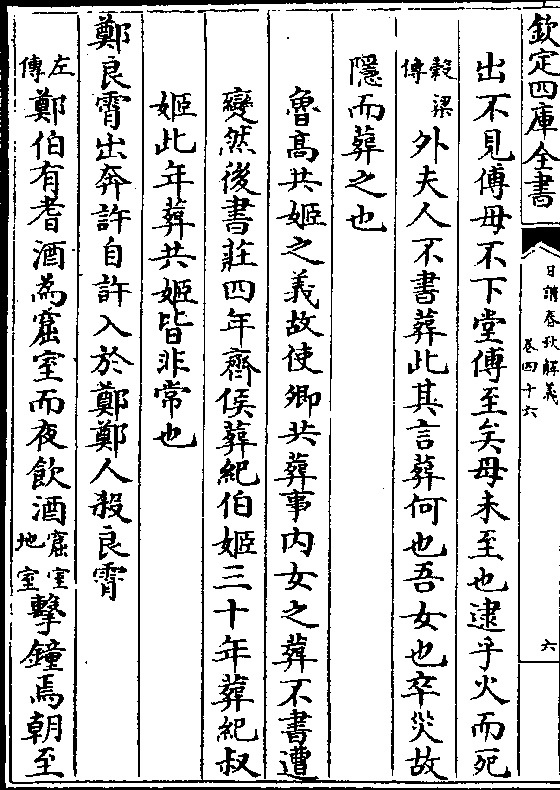 欽定四庫全書
日講春秋解義
卷四十六
六
出不見傅母不下堂傅至矣母未至也逮乎火而死
穀梁傳外夫人不書葬此其言葬何也吾女也卒災故
隱而葬之也
魯髙共姬之義故使卿共葬事内女之葬不書遭
變然後書莊四年齊侯葬紀伯姬三十年葬紀叔
姬此年葬共姬皆非常也
鄭良霄出奔許自許入於鄭鄭人殺良霄
左傳鄭伯有耆酒為窟室而夜飲酒窟室地室擊鐘焉朝至